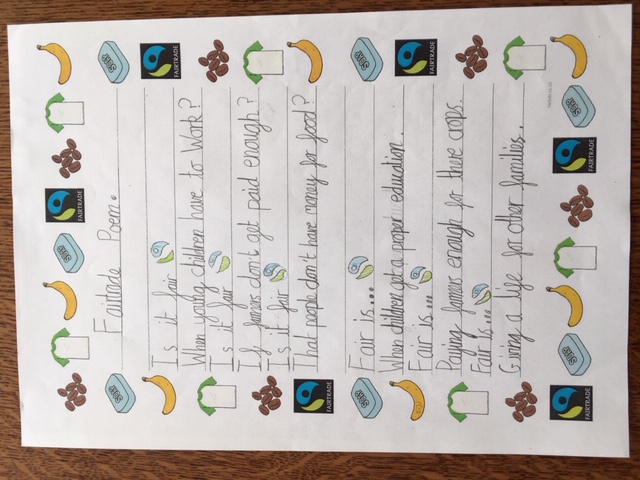 Fairtrade Poem.
Is it fair
When young children have to work?
Is it fair
If farmers don't get paid enough?
Is it fair
That people don't have money for food?
Fair is...
When children get a proper education.
Fair is...
Paying farmers enough for there crops.
Fair is...
Giving a life for other families.
FAIRTRADE
FAIRTRADE
FAIRTRADE
FAIRTRADE
FAIRTRADE
FAIRTRADE